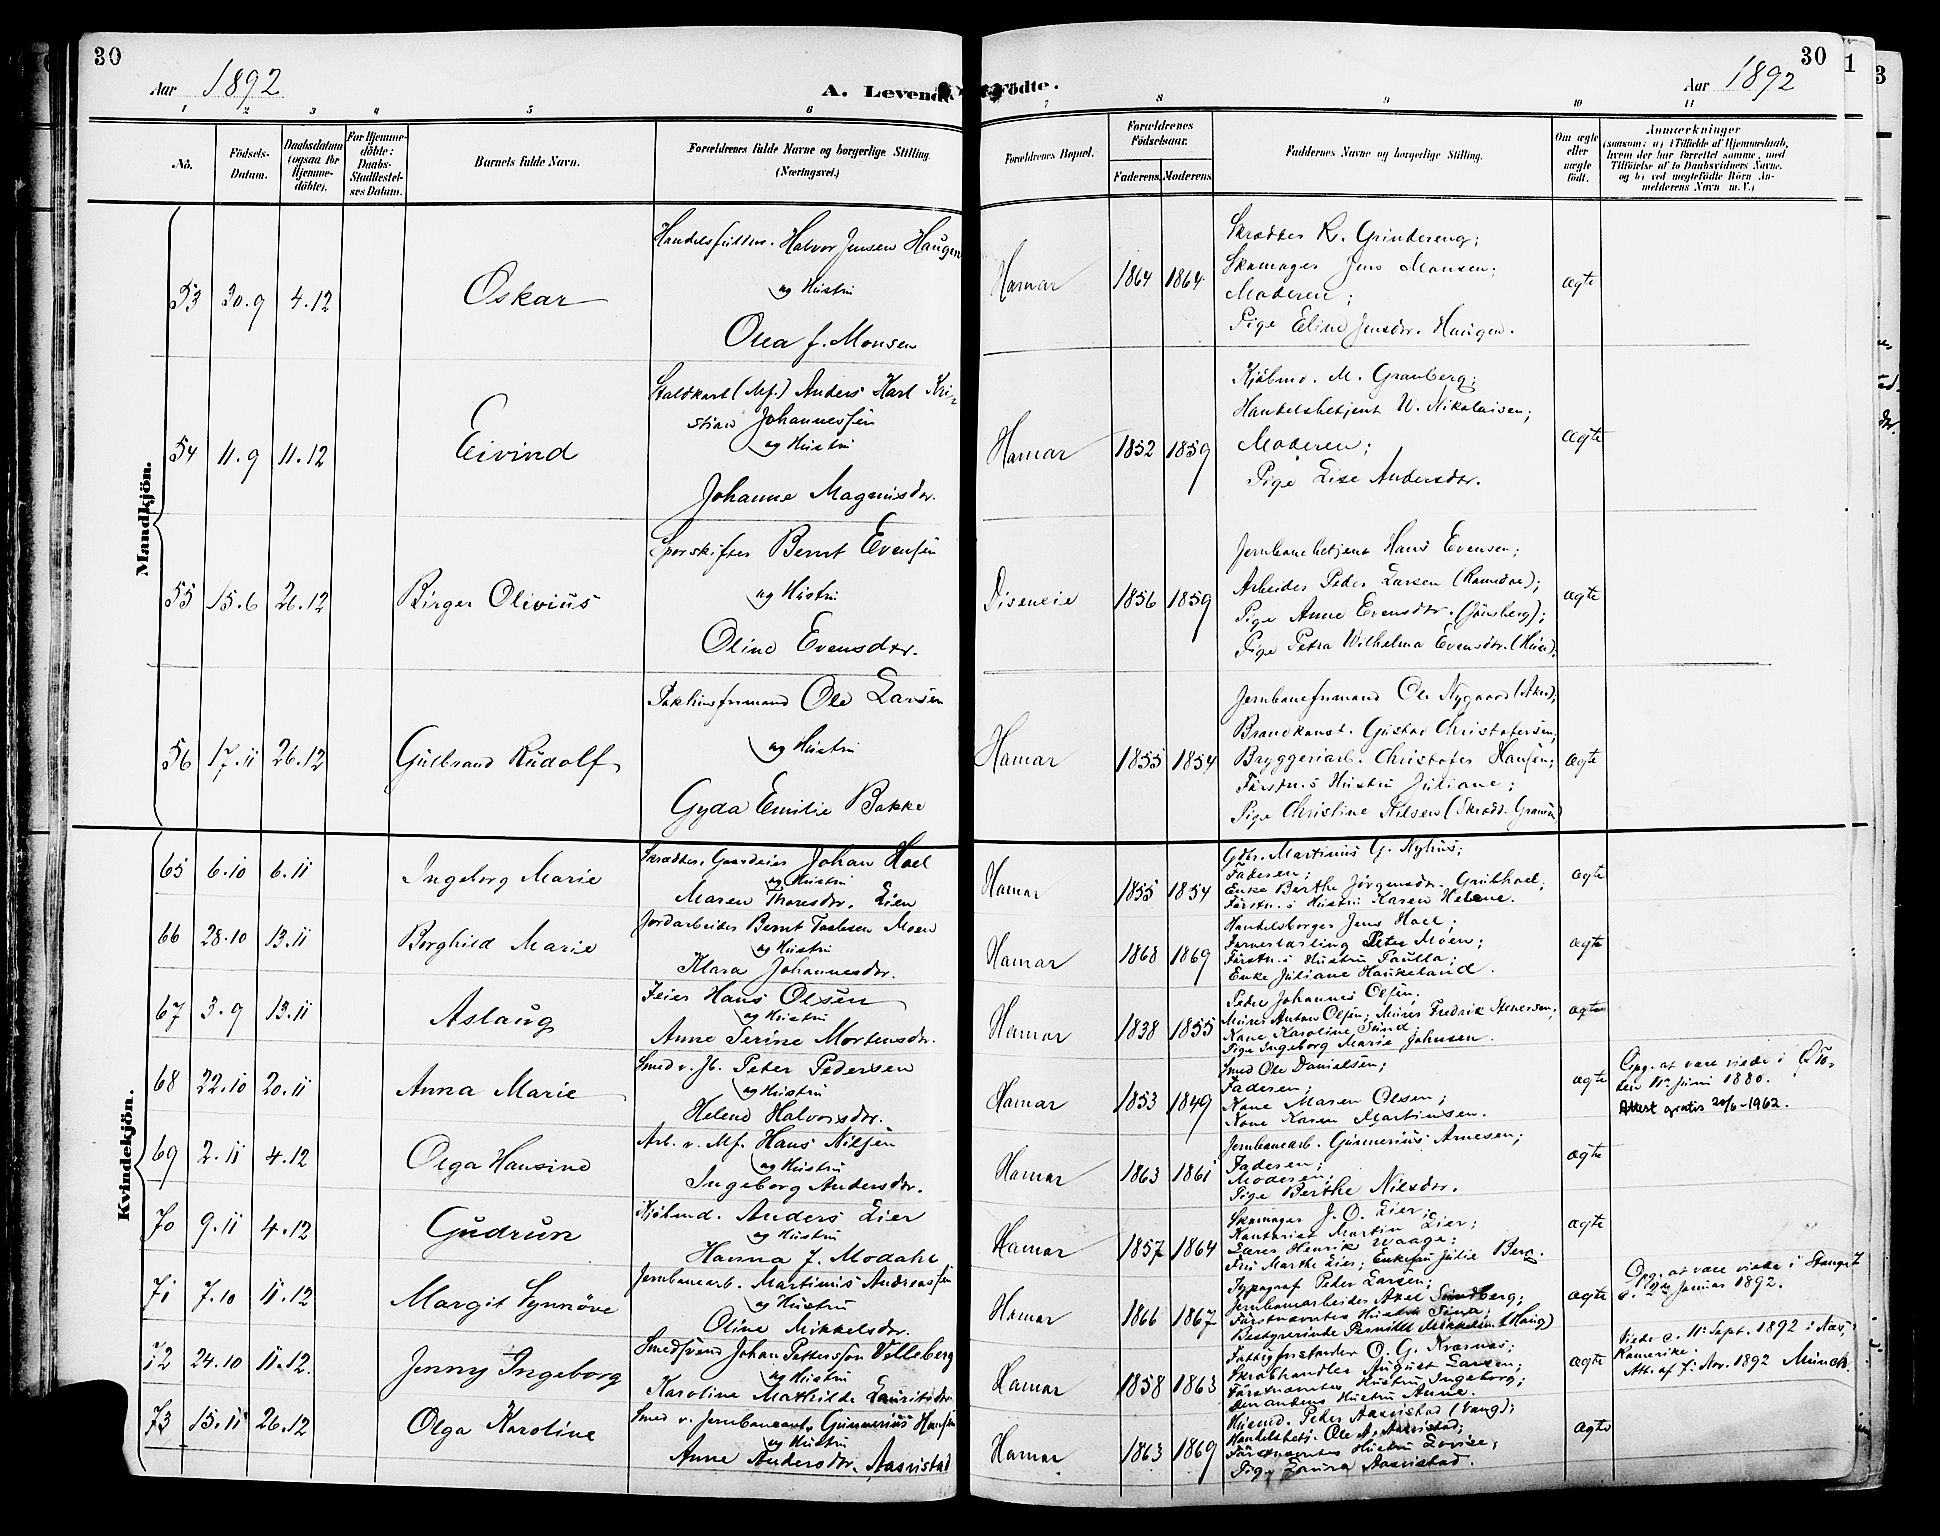 30
Aar 1892
A. Levende Födte.
30
Aar 1892
1 2 3 4 5 6 7 8 9 10 11
No.
Födsels-
Datum.
Daabsdatum
(ogsaa for
Hjemme-
döbte).
For Hjemme-
döbte:
Daabs-
Stadfestel-
ses Datum.
Barnets fulde Navn.
Forældrenes fulde Navne og borgerlige Stilling
(Næringsvei.)
Forældrenes Bopæl.
Forældrenes
Födselsaar.
Faderens. Moderens.
Faddernes Navne og borgerlige Stilling.
Om ægte
eller
uægte
födt.
Anmærkninger
(saasom: a) i Tilfælde af Hjemmedaab,
hvem der har forrettet samme, med
Tilföielse af to Daabsvidners Navne,
og b) ved uegtefödte Börn An-
melderens Navn m. V.)
Mandkjön.
53 30.9 4.12 Oskar
Halvor Jensen Haugen
og Hustru
Olea f. Monsen
Hamar 1864 1864
Skrædder R. Grindereng;
Skomager Jens Monsen;
Moderen;
Pige Eline Jensdr. Haugen.
ægte
54 11.9 11.12 Eivind
Staldkarl (Mf.) Anders Karl Kri-
stian Johannessen
og Hustru
Johanne Magnusdr.
Hamar 1852 1859
Kjøbmd. M. Granberg;
Handelsbetjent W. Nikolaisen;
Moderen;
Pige Lise Andersdr.
ægte
55 15.6 26.12 Birger Olivius
Sporskifter Bernt Evensen
og Hustru
Oline Evensdr.
Diseneie 1856 1859
Jernbanebetjent Hans Evensen;
Arbeider Peder Larsen (Romedal);
Pige Anne Evensdr. (Jönsberg);
Pige Petra Wilhelma Evensdr. (Huse).
ægte
56 17.11 26.12 Gulbrand Rudolf
Pakhusformand Ole Larsen
og Hustru
Gyda Emilie Bakke
Hamar 1855 1854
Jernbaneformand Ole Nygaard (Aker);
Brandkonst. Gustav Christofersen;
Bryggeriarb. Christofer Hansen;
Förstn.s Hustru Juliane;
Pige Christine Nilsen
ægte
Kvindekjön.
65 6.10 6.11 Ingeborg Marie
Skrædder, Gaardeier Johan Hoel
og Hustru
Maren Thoresdr. Lien
Hamar 1855 1854
Gdbr. Martinus G. Nyhus;
Faderen;
Enke Berthe Jørgensdr. Grubhoel;
Förstn.s Hustru Karen Helene.
ægte
66 28.10 13.11 Borghild Marie
Jordarbeider Bernt Moen
og Hustru
Klara Johannesdr.
Hamar 1868 1869
Handelsborger Jens Hoel;
Peter Moen;
Förstn.s Hustru Paulla;
Enke Juliane Haukeland.
ægte
67 3.9 13.11 Aslaug
Feier Hans Olsen
og Hustru
Anne Serine Mortensdr.
Hamar 1838 1855
Peder Johannes Olsen;
Murer Anton Olsen; Murer Fredrik
Kone Karoline Sund;
Pige Ingeborg Marie Johnsen.
ægte
68 22.10 20.11 Anna Marie
Smed v. Jb. Peter Pedersen
og Hustru
Helene Halvorsdr.
Hamar 1853 1849
Smed Ole Danielsen;
Faderen;
Kone Maren Olsen;
Kone Karen Martinsen.
ægte
Opg. at være viede i
den 11te Juni 1880.
Attest gratis 20/6-1962.
69 2.11 4.12 Olga Hansine
Arb. v. Mf. Hans Nilsen
og Hustru
Ingeborg Andersdr.
Hamar 1863 1861
Jernbanearb. Gunnerius Arnesen;
Faderen;
Moderen;
Pige Berthe Nilsdr.
ægte
70 9.11 4.12 Gudrun
Kjøbmd. Anders Lier
og Hustru
Hanna f. Modahl
Hamar 1857 1864
Skomager J. O. Lier;
Kontorist Martin Lier;
Lærer Henrik Waage;
Fru Marthe Lier; Enkefru Julie Berg.
ægte
71 7.10 11.12 Margit Synnöve
Jernbanearb. Martinus Andreassen
og Hustru
Oline Mikkelsdr.
Hamar 1866 1867
Typograf Peter Larsen;
Jernbanearbeider Axel Sundberg;
Förstnævntes Hustru Sina;
Bestyrerinde Pernille Mikkelsen (Haug)
ægte
Opg. at være viede i Stange
d. Januar 1892.
72 24.10 11.12 Jenny Ingeborg
Smedsvend Johan Pettersson Vollsberg
og Hustru
Karoline Mathilde Lauritsdr.
Hamar 1858 1863
Fattigforstander O. G. Kværnes;
Skrabhandler August Larsen;
Förstnævntes Hustru Ingeborg;
Den andens Hustru Anne.
ægte
Viede d. 11te Sept. 1892 i Næs,
Romerike.
Att. af 7. Nov. 1892 Munch.
73 15.11 26.12 Olga Karoline
Smed v. Jernbaneant. Gunnerius Hansen
og Hustru
Anne Andersdr. Aasvistad
Hamar 1863 1869
Husmd. Peter Aasvistad (Vang);
Handelsbetj. Ole A. Aasvistad;
Förstnævntes Hustru Lovise;
Pige Laura Aasvistad.
ægte